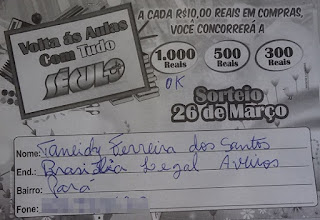 Volta ás Aulas
Com Tudo
SÉCULO
A CADA R$10,00 REAIS EM COMPRAS,
VOCÊ CONCORRERÁ A
1.000
Reais
500
Reais
300
Reais
OK
Sorteio
26 de Março
Nome: Taneidy Ferreira dos Santos
End.: Brasilia Legal Aveiros
Bairro: Pará
Fone: